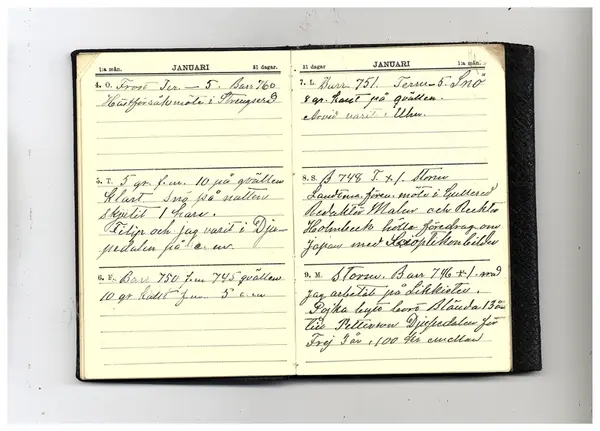 1:a mån. JANUARI 31 dagar.
4. O. Frost Ter. — 5. Bar 760
Hästförsäk möte i
5. T. 5 gr. f.m. 10 på qvällen
klart. Snö på natten
skjutit 1 hare.
Filip och jag varit i Dju-
pedalen på e.m.
6. F. Bar 750 f.m 745 qvällen
10 gr kallt f.m. 5 e.m
31 dagar JANUARI 1:a mån.
7. L. Barr 751. Term—5. Snö
8 gr. kallt på qvällen.
Arvid varit i Ulm.
8. S. B 748 T + 1. Storm
Landtm. fören. möte i Gullered
Redaktör Malm och Rektor
Holmbeck höllo föredrag om
japan med Skioptikonbilder
9. M. Storm. Barr 746 + 1. grad
jag arbetat på Likkistor.
Pojka byto bort Blända 13 år
till Pettersson Djupedalen för
Fröj 3 år, 100 Kr emellan